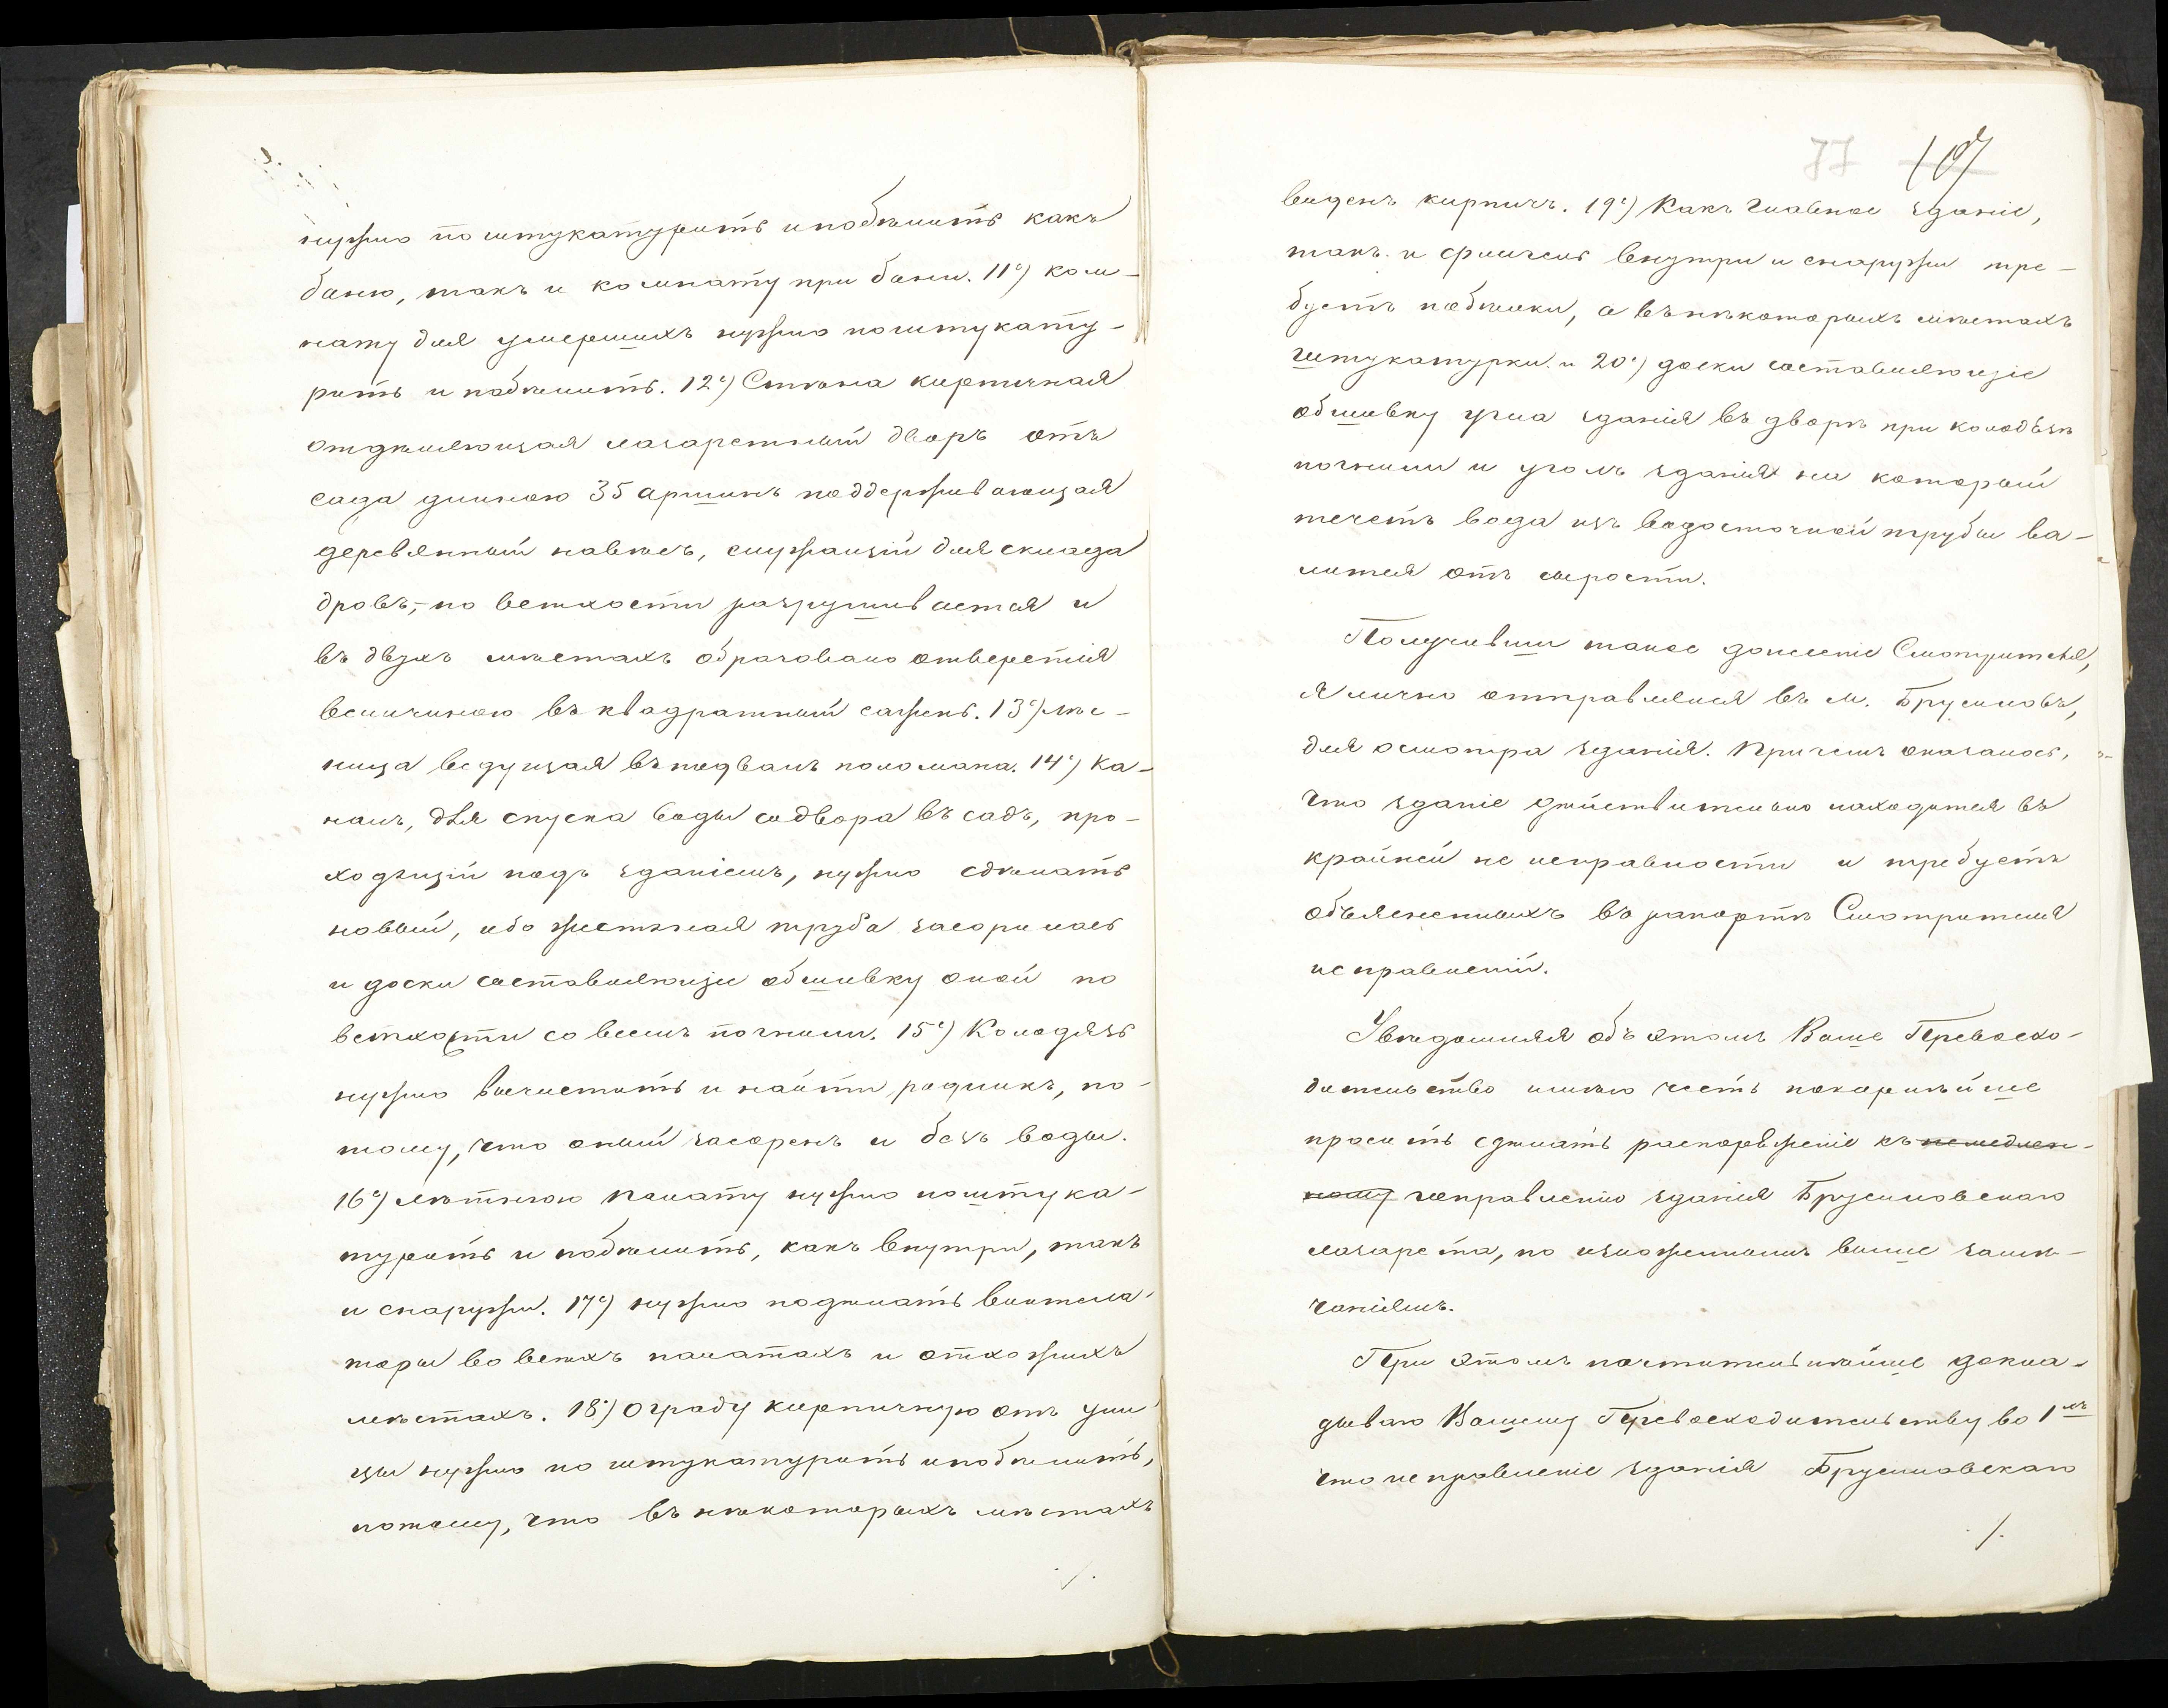 нужно поштукатурить и побѣлить какъ
баню, такъ и комнату при бани. 11е) ком-
нату для умершихъ нужно поштукату-
рить и побѣлить. 12е) Стѣна кирпичная
отдѣляющая лазаретный дворъ отъ
сада длиною 35 аршинъ поддерживающая
деревянный навѣсъ, служащій для склада
дровъ,- по ветхости разрушивается и
въ двухъ мѣстахъ образовано отверстія
величиною въ квадратный сажень. 13е) лѣс-
ница ведущая въ подвалъ поломана. 14е) Ка-
налъ, для спуска воды со двора въ садъ, про-
ходящій подъ зданіемъ, нужно сдѣлать
новый, ибо жестяная труба засорилась
и доски составляющіе обшивку оной по
ветхости совсемъ погнили. 15е) Колодязь
нужно вычистить и найти родникъ, по-
тому, что оный засоренъ и безъ воды.
16е) лѣтнюю палату нужно поштука-
турить и побѣлить, какъ внутри, такъ
и снаружи. 17е) нужно подѣлать вентиля-
торы во всѣхъ палатахъ и отхожихъ
мѣстахъ. 18е) Ограду кирпичную отъ ули
цы нужно поштукатурить и побѣлить,
потому, что въ нѣкоторыхъ мѣстахъ
./.
77 107
виденъ кирпичъ. 19е) Какъ главное зданіе,
такъ и флигель внутри и снаружи тре-
буетъ побѣлки, а въ нѣкоторыхъ мѣстахъ
штукатурки. и 20е) доски составляющіе
обшивку угла зданія въ дворѣ при колодѣзѣ
погнили и уголъ зданія на который
течетъ вода изъ водосточной трубы ва-
лится отъ сырости.
Получивши такое донесеніе Смотрителя,
я лично отправлялся въ м. Брусиловъ,
для осмотра зданія. Причемъ оказалось,
что зданіе дѣйствительно находится въ
крайней не исправности и требуетъ
объясненныхъ въ рапортѣ Смотрителя
исправленій.
Увѣдомляя объ этомъ Ваше Превосхо-
дительство имѣю честь покорнѣйше
просить сдѣлать распоряженіе къ немедлен-
ному исправленію зданія Брусиловскаго
лазарета, по изложеннымъ выше замѣ-
чаніямъ.
При этомъ почтительнѣйше докла-
дываю Вашему Превосходительству во 1мъ
что исправленіе зданія Брусиловскаго
./.